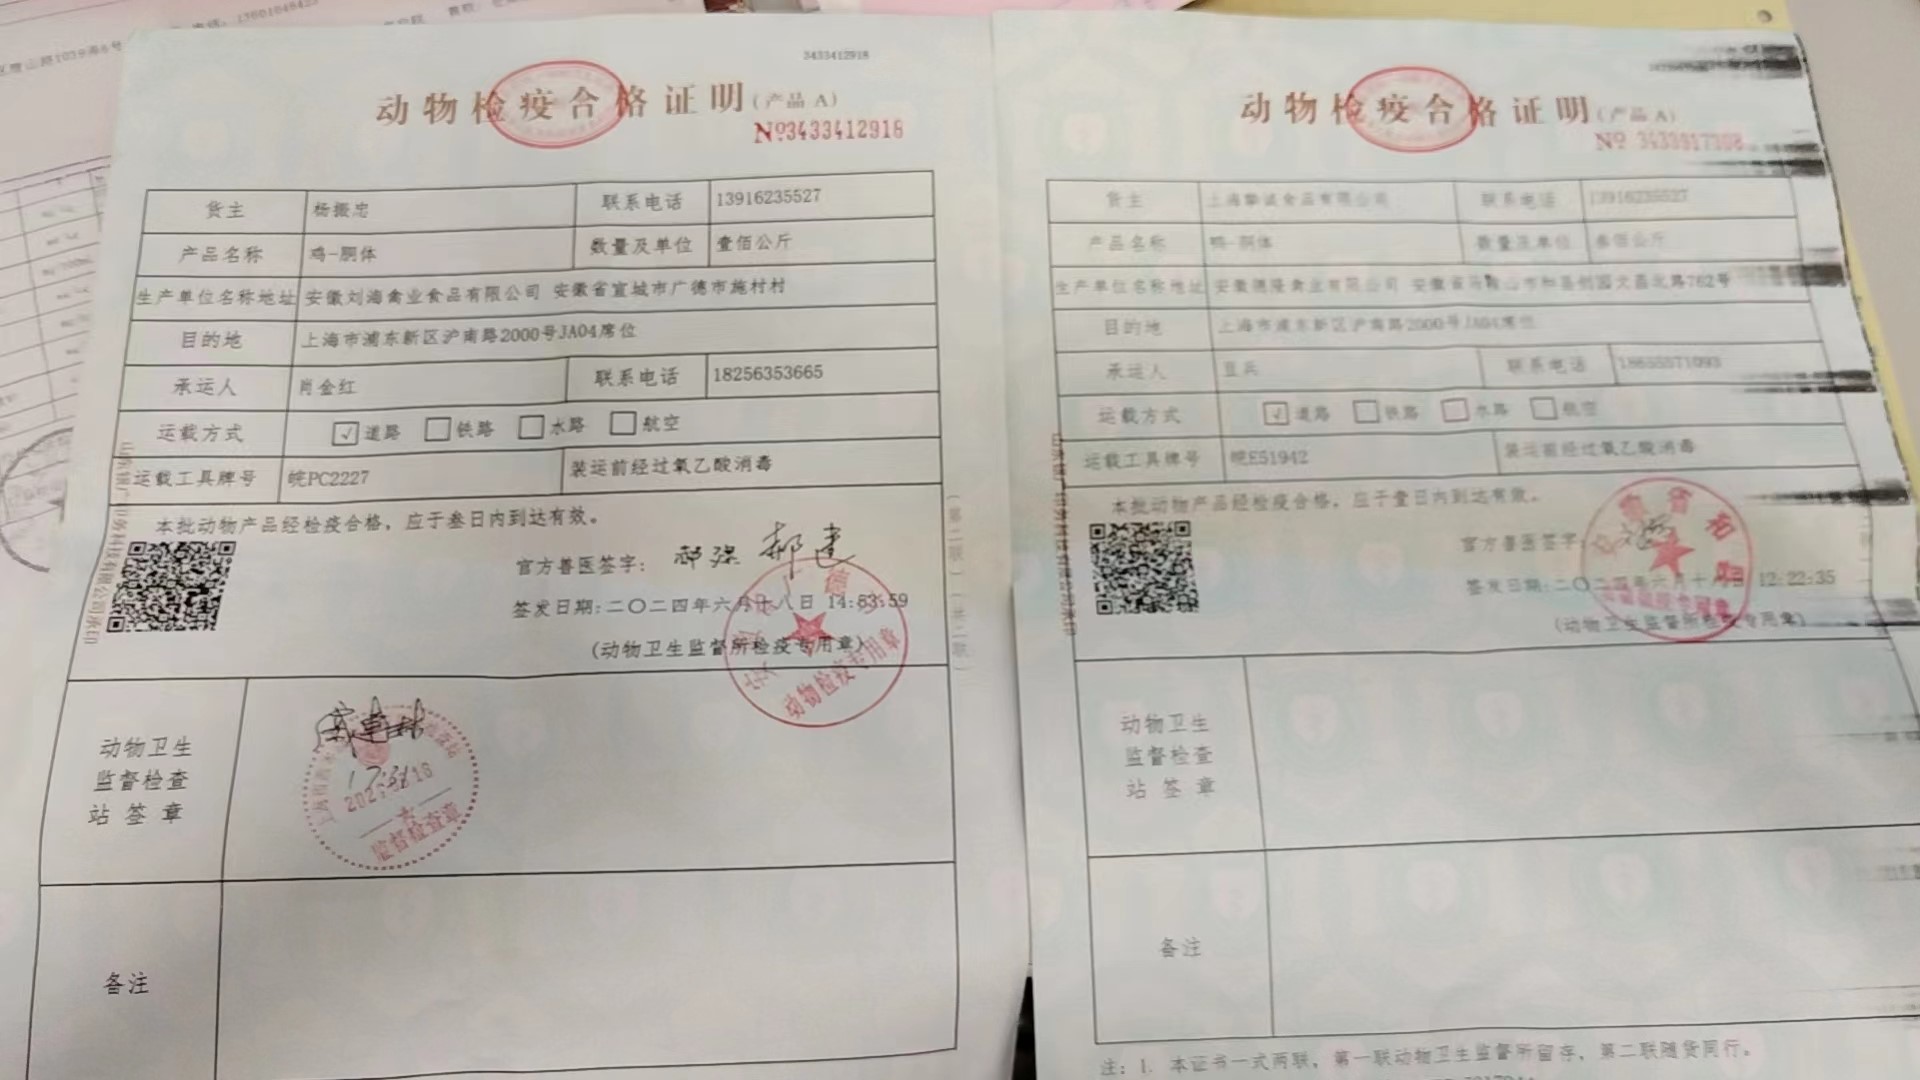 3433412918
动物检疫合格证明(产品 A)
№3433412918
货主 杨振忠 联系电话 13916235527
产品名称 鸡-胴体 数量及单位 壹佰公斤
生产单位名称地址 安徽刘海禽业食品有限公司 安徽省宣城市广德市施村村
目的地 上海市浦东新区沪南路2000号JA04席位
承运人 肖金红 联系电话 18256353665
运载方式 √道路 铁路 水路 航空
运载工具牌号 皖PC2227 装运前经过氧乙酸消毒
本批动物产品经检疫合格，应于叁日内到达有效。
官方兽医签字：
签发日期:二〇二四年六月十八日 14:53:59
(动物卫生监督所检疫专用章)
动物检疫专用章
动物卫生
监督检查
站签章
监督检查章
备注
(第二联)(共二联)
动物检疫合格证明(产品 A)
货主 上海 食品有限公司 联系电话 13916235527
产品名称 鸡-胴体 数量及单位 叁佰公斤
生产单位名称地址 安徽 禽业有限公司 安徽省马鞍山市和县 文昌北路762号
目的地 上海市浦东新区沪南路2000号JA04席位
承运人 联系电话 18655571093
运载方式 √道路 铁路 水路 航空
运载工具牌号 皖E51942 装运前经过氧乙酸消毒
本批动物产品经检疫合格，应于壹日内到达有效。
官方兽医签字：
签发日期:二〇二四年六月十 日 12:22:35
(动物卫生监督所检疫专用章)
动物卫生
监督检查
站签章
备注
注：1. 本证书一式两联，第一联动物卫生监督所留存，第二联随货同行。